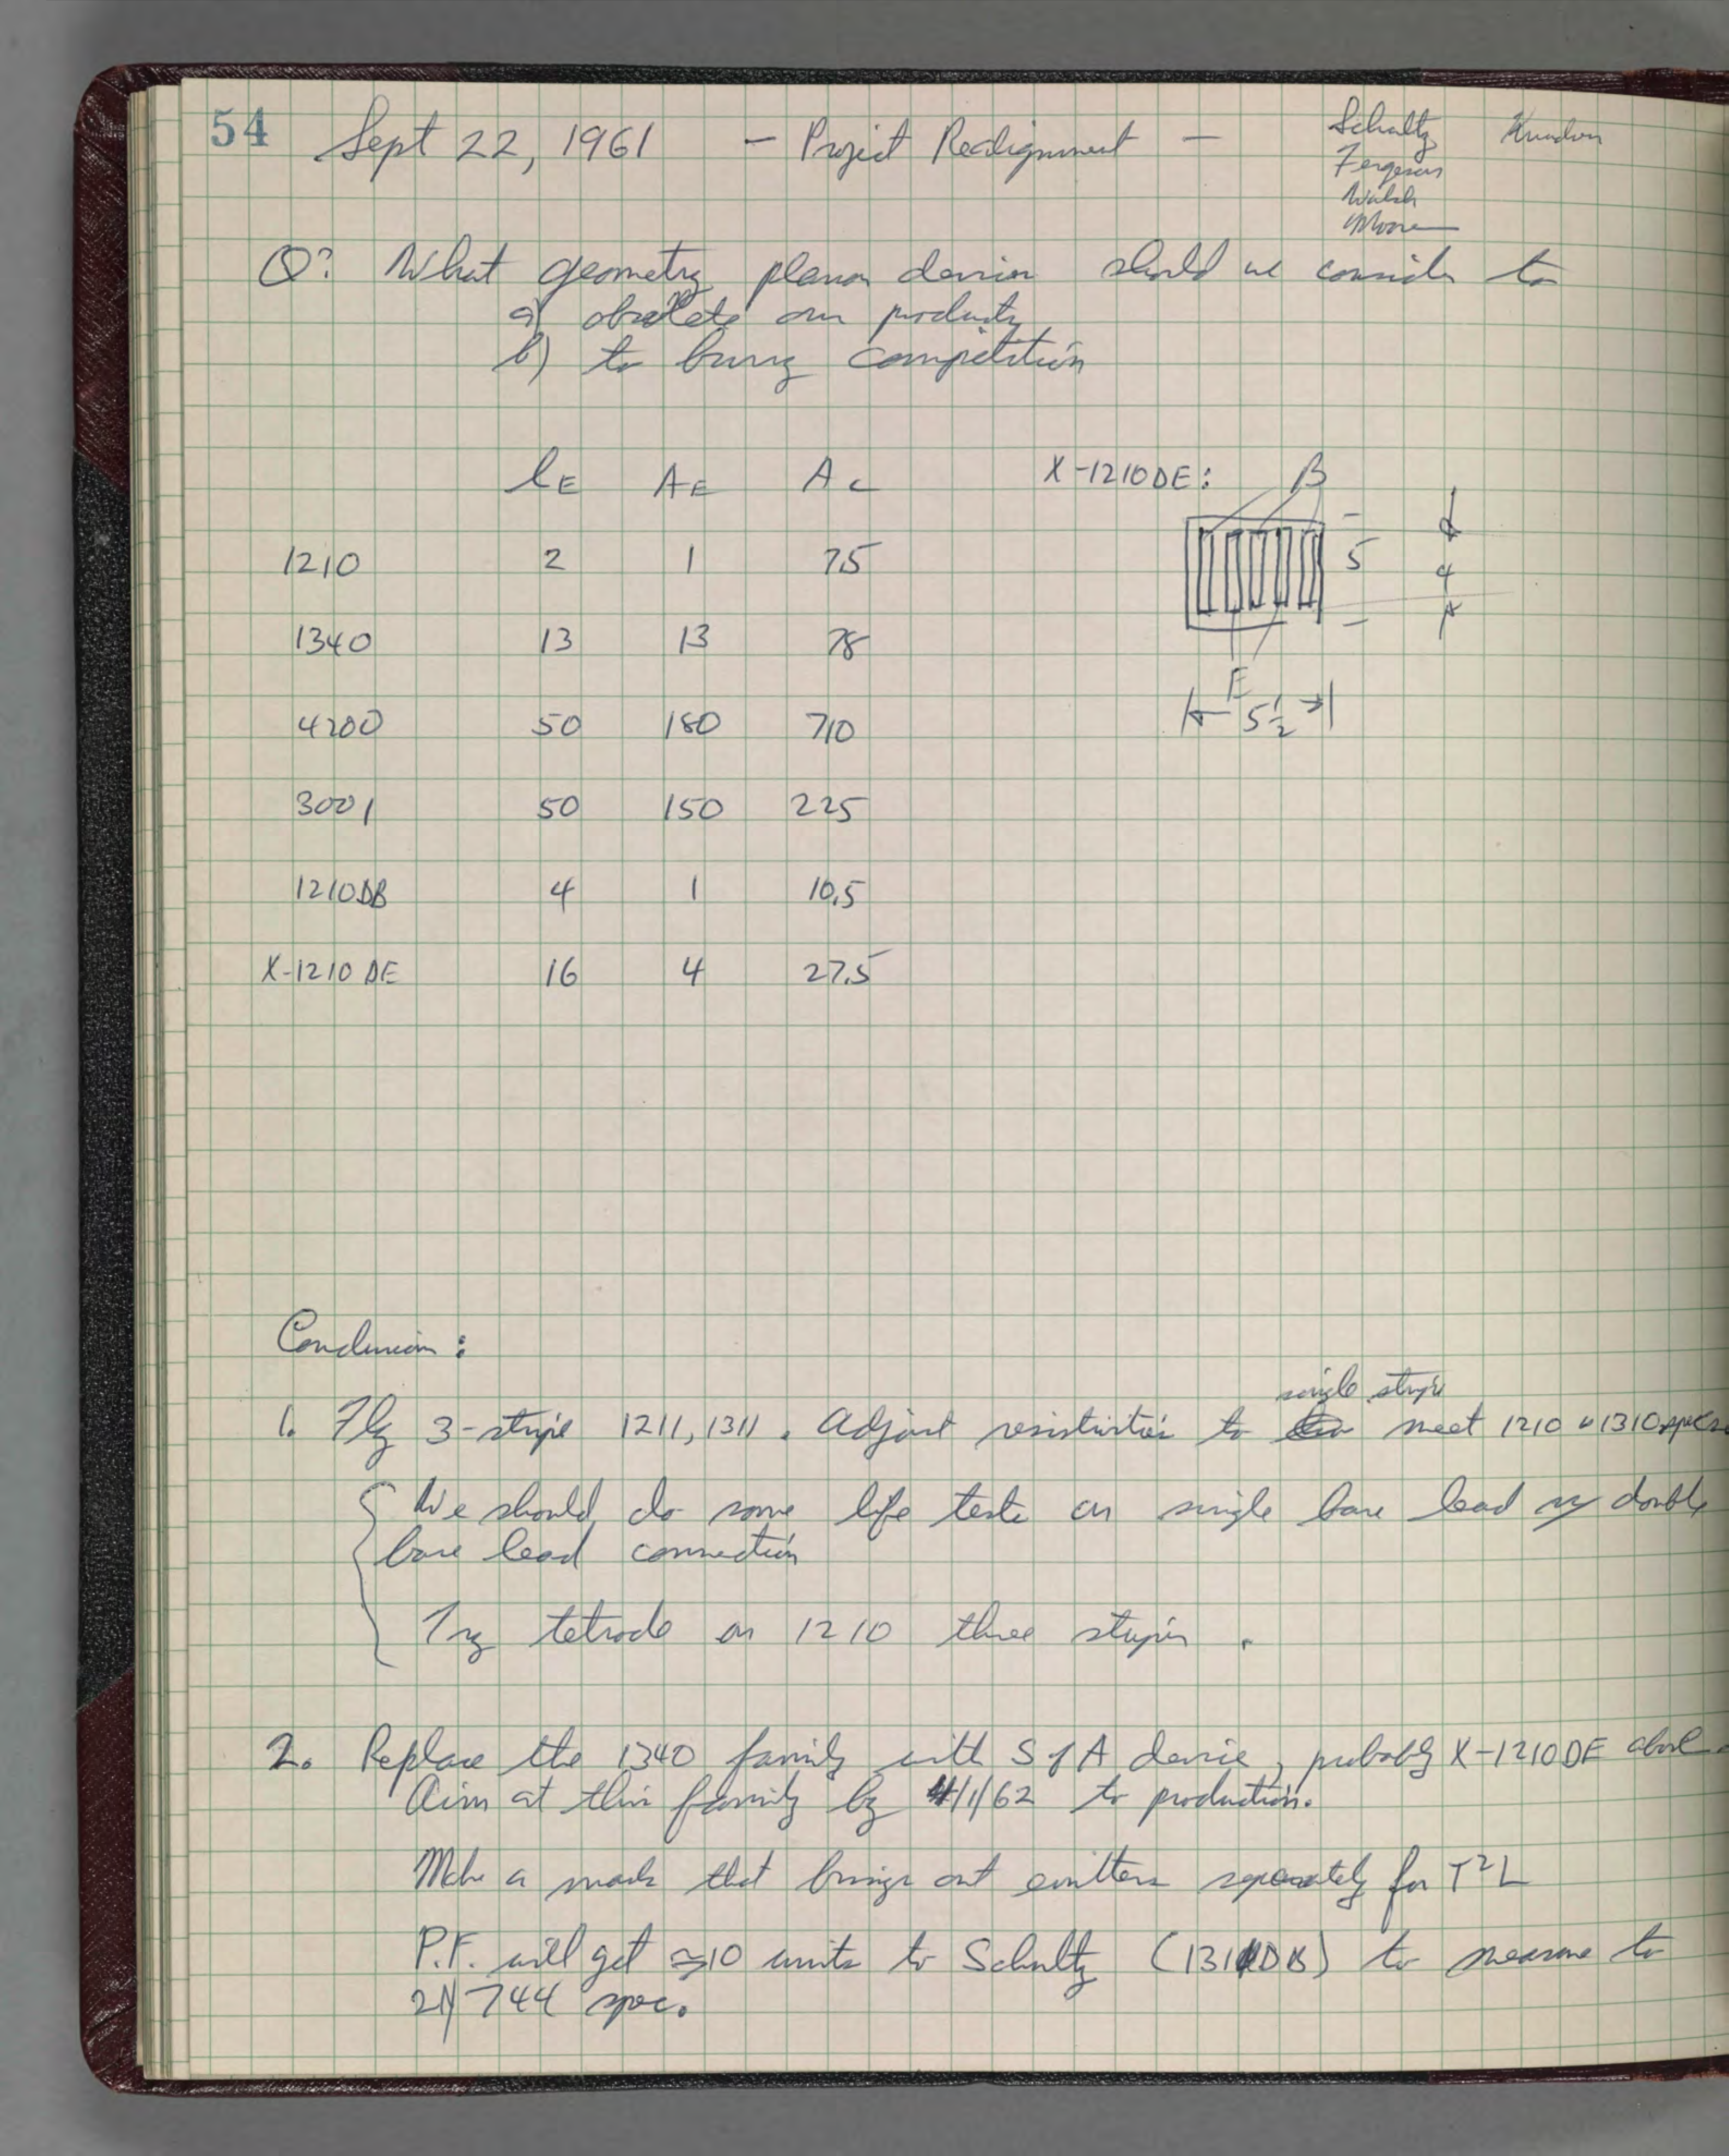 54
Sept 22, 1961 — Project Realignment —
Schultz
Ferguson
Walsh
Moore
Q? What geometry planar devices should we consider to
a) obsolete our products
b) to bury competition
lE AE AC
1210 2 1 7.5
1340 13 13 78
4200 50 180 710
3001 50 150 225
1210DB 4 1 10.5
X-1210 DE 16 4 27.5
X-1210DE: B
5
4
E
5½
Conclusion:
single stripe
1. Fly 3-stripe 1211, 1311. Adjust resistivities to meet 1210 1310 specs
We should do some life tests on single base lead double
base lead connection
Try tetrode on 1210 three stripes.
2. Replace the 1340 family with S of A device, probably X-1210DE above.
Aim at this family by 4/1/62 to production.
Make a mask that brings out emitters separately for T²L
P.F. will get ≈10 units to Schultz (1311DB) to measure to
2N744 spec.